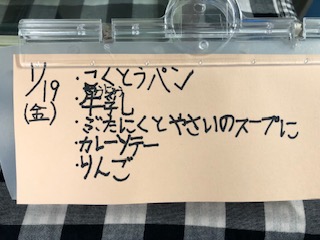 1/19
(金)
・こくとうパン
・牛乳
・ぶたにくとやさいのスープに
・カレーソテー
・りんご